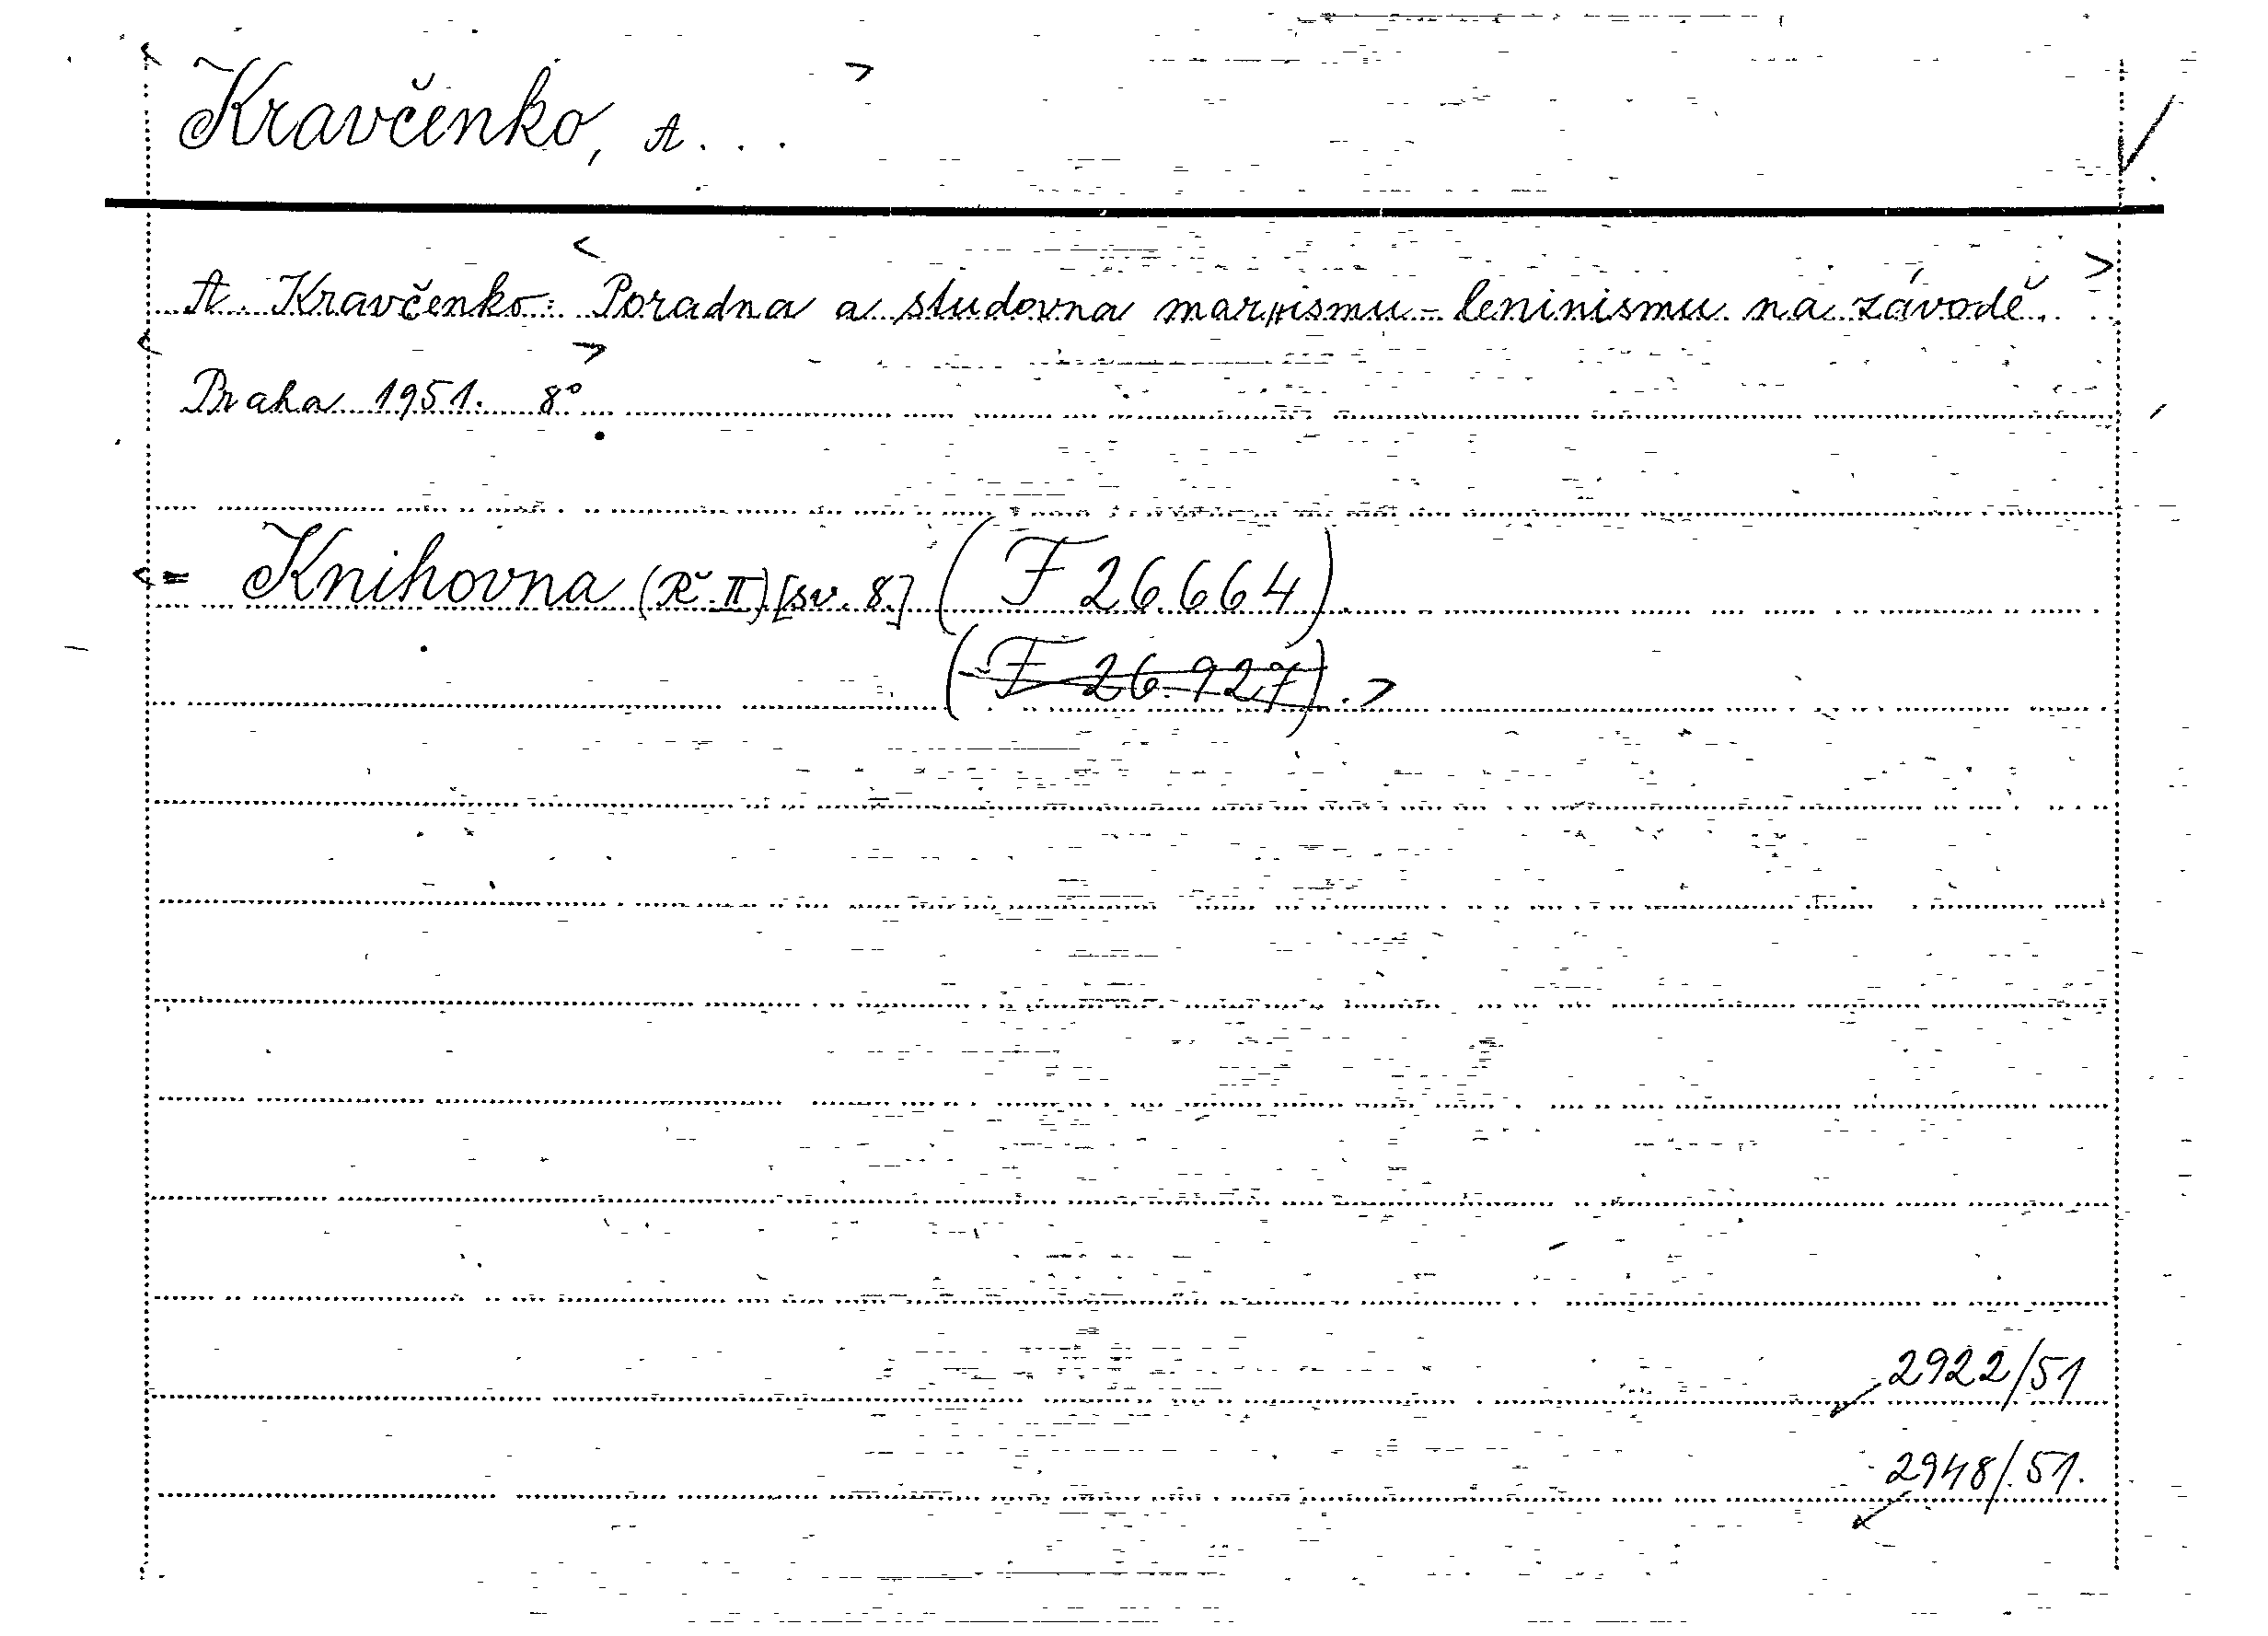 Kravčenko, A...
A. Kravčenko: Poradna a studovna marxismu-leninismu na závodě.
Praha 1951. 8°
= Knihovna (Ř.II)[sv. 8.] (F 26.664)
(F 26.927).
2922/51
2948/51.